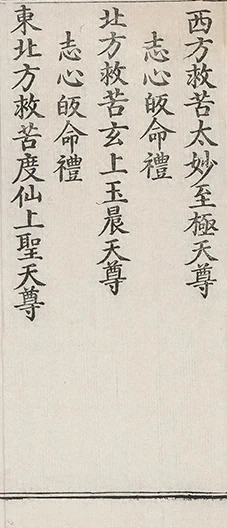 西方救苦太妙至極天尊
志心皈命禮
北方救苦玄上玉晨天尊
志心皈命禮
東北方救苦度仙上聖天尊